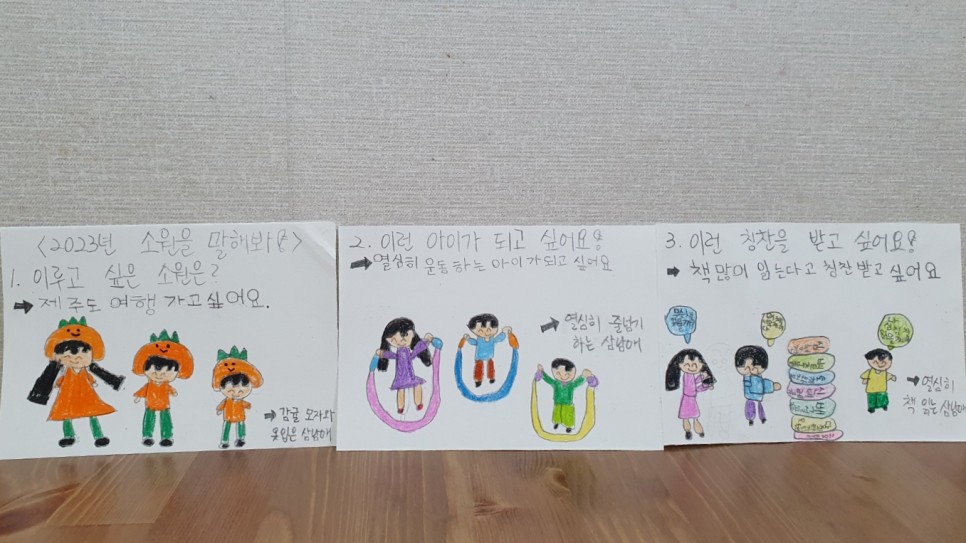 <2023년 소원을 말해봐!>
1. 이루고 싶은 소원은?
➡ 제주도 여행 가고싶어요.
➡ 감귤 모자와
옷입은 삼남매
2. 이런 아이가 되고 싶어요!
➡ 열심히 운동하는 아이가 되고 싶어요
➡ 열심히 줄넘기
하는 삼남매
3. 이런 칭찬을 받고 싶어요!
➡ 책 많이 읽는다고 칭찬 받고 싶어요
➡ 열심히
책 읽는 삼남매